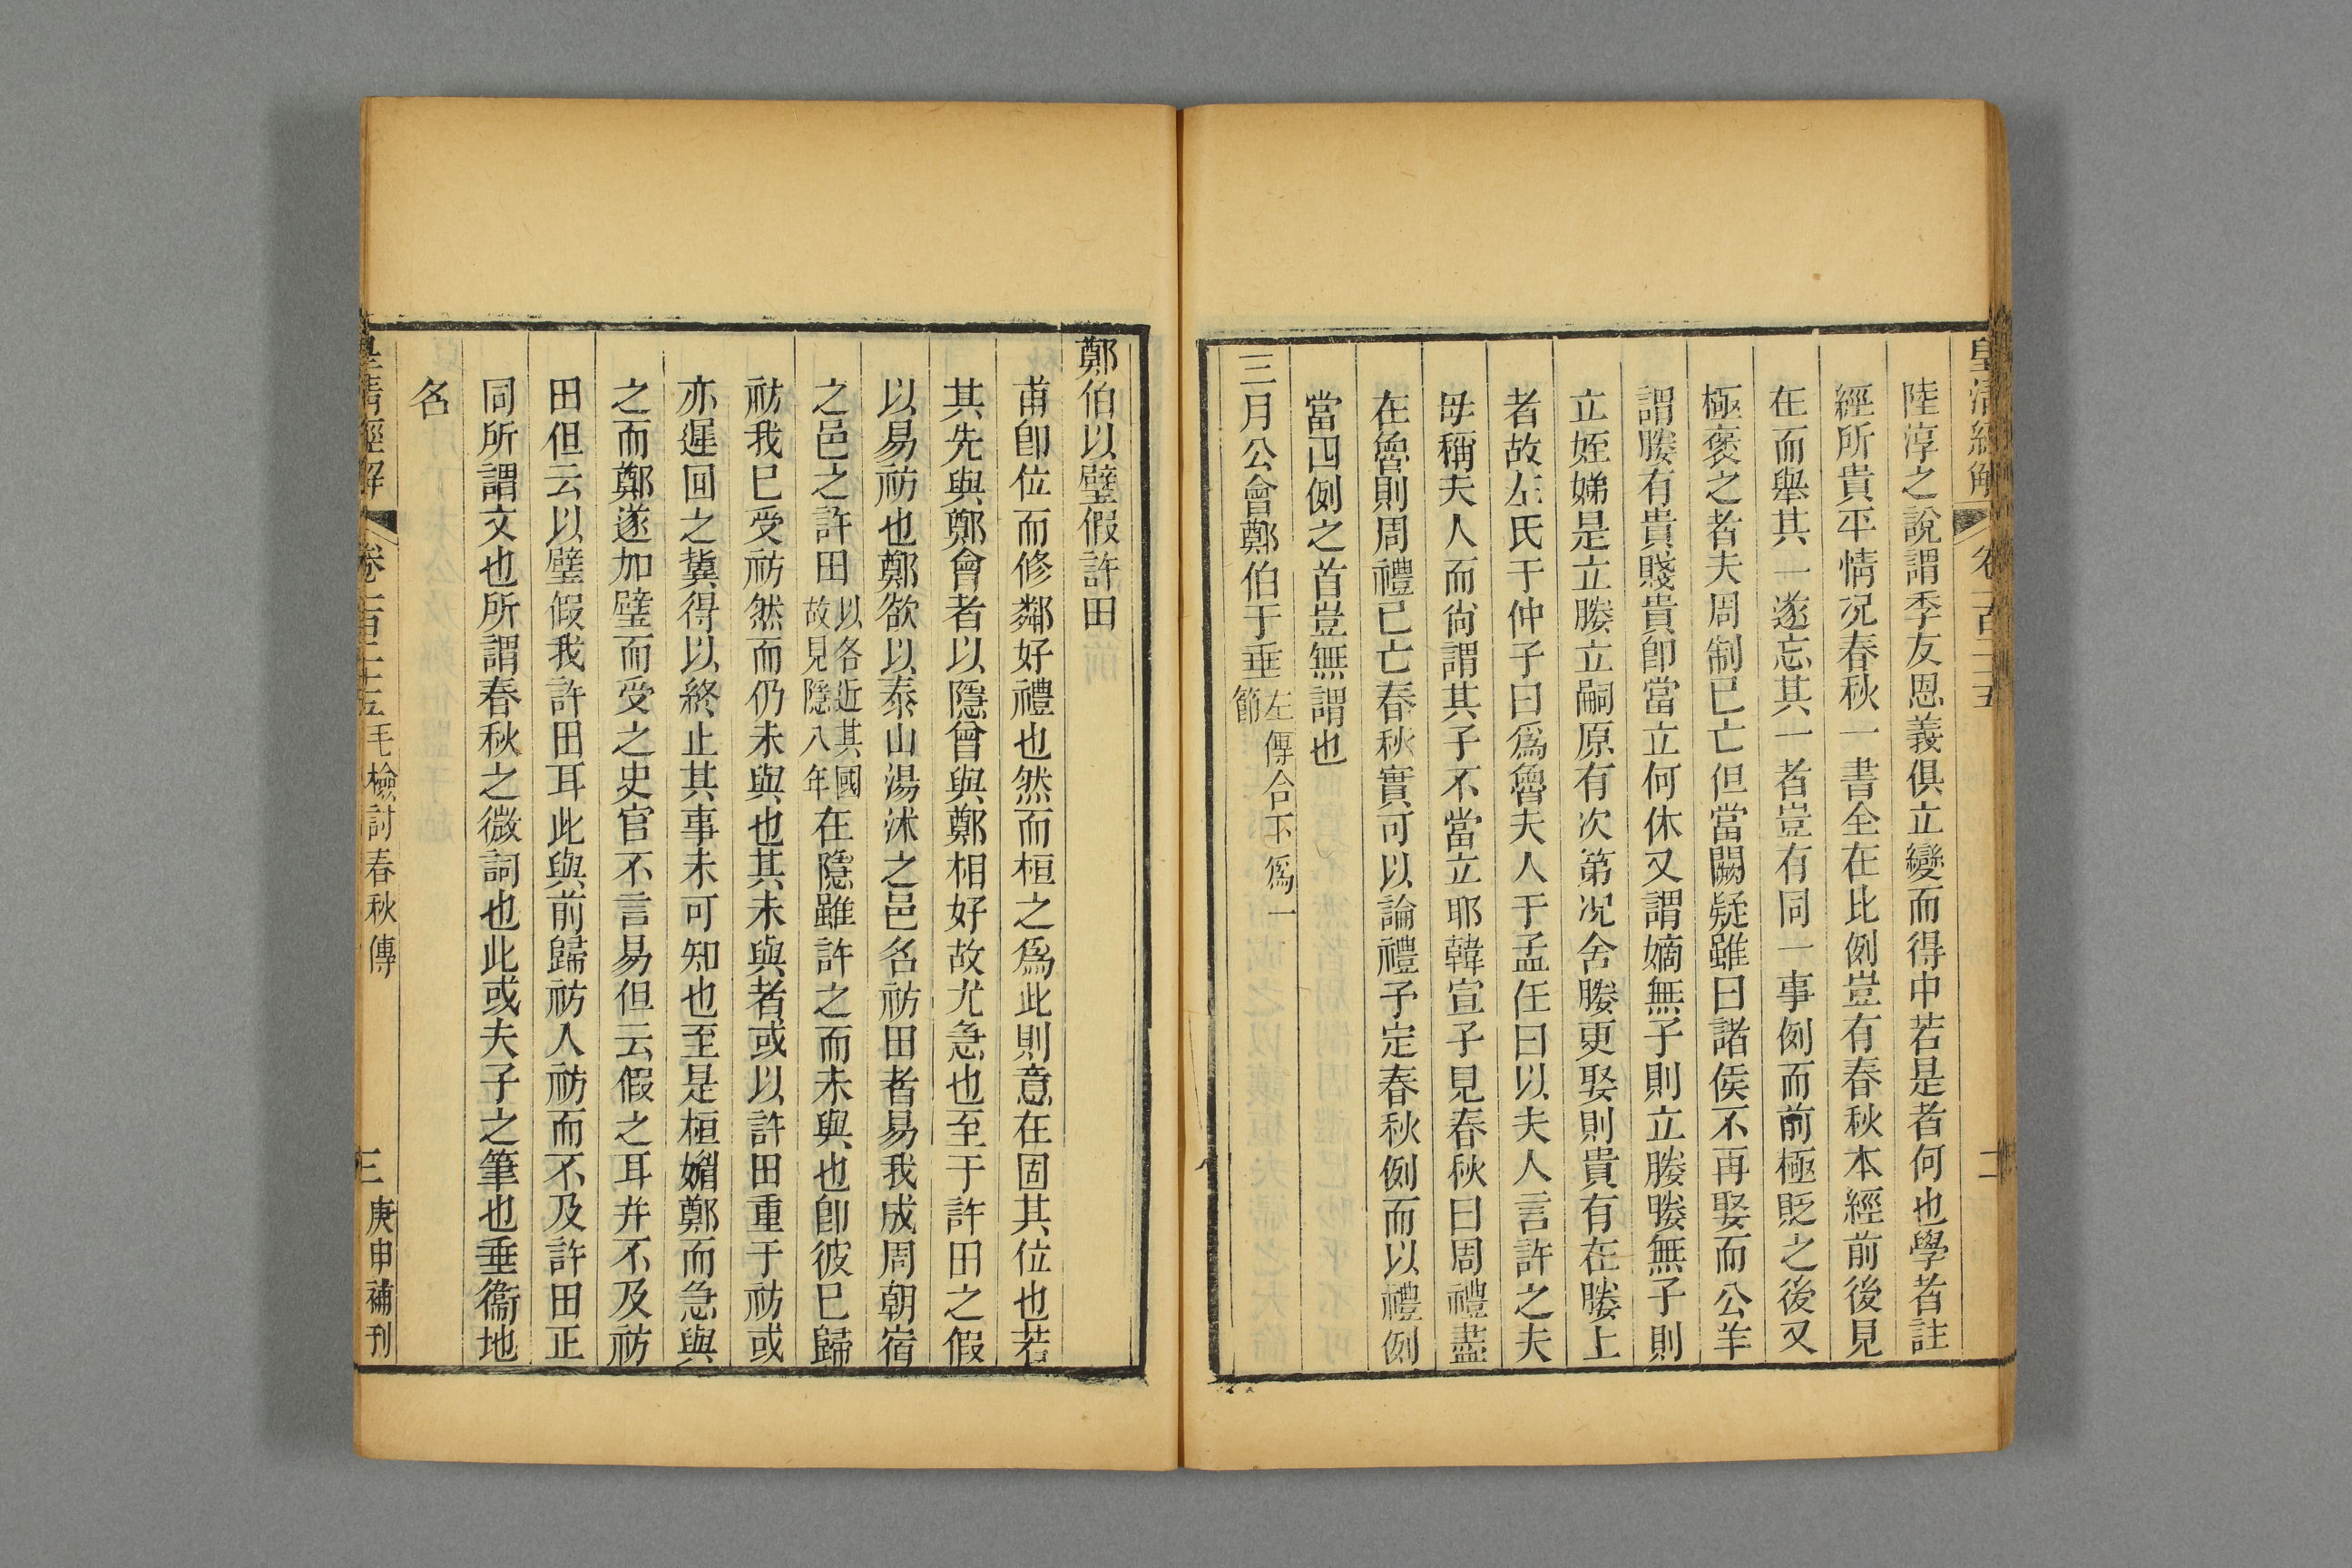 皇清經解 卷一百二十五 二
陸淳之說謂季友恩義俱立變而得中若是者何也學者註
經所貴平情况春秋一書全在比例豈有春秋本經前後見
在而舉其一遂忘其一者豈有同一事例而前極貶之後又
極褒之者夫周制已亡但當闕疑雖曰諸侯不再娶而公羊
謂媵有貴賤貴卽當立何休又謂嫡無子則立媵媵無子則
立姪娣是立媵立嗣原有次第况舍媵更娶則貴有在媵上
者故左氏于仲子曰爲魯夫人于孟任曰以夫人言許之夫
母稱夫人而尙謂其子不當立耶韓宣子見春秋曰周禮盡
在魯則周禮已亡春秋實可以論禮予定春秋例而以禮例
當四例之首豈無謂也
三月公會鄭伯于垂左傳合下爲一節
鄭伯以璧假許田
甫卽位而修鄰好禮也然而桓之爲此則意在固其位也若
其先與鄭會者以隱曾與鄭相好故尤急也至于許田之假
以易祊也鄭欲以泰山湯沭之邑名祊田者易我成周朝宿
之邑之許田以各近其國故見隱八年在隱雖許之而未與也卽彼已歸
祊我已受祊然而仍未與也其未與者或以許田重于祊或
亦遲回之冀得以終止其事未可知也至是桓媚鄭而急與
之而鄭遂加璧而受之史官不言易但云假之耳幷不及祊
田但云以璧假我許田耳此與前歸祊入祊而不及許田正
同所謂文也所謂春秋之微詞也此或夫子之筆也垂衞地
名
皇清經解 卷一百二十五 毛檢討春秋傳 三 庚申補刊